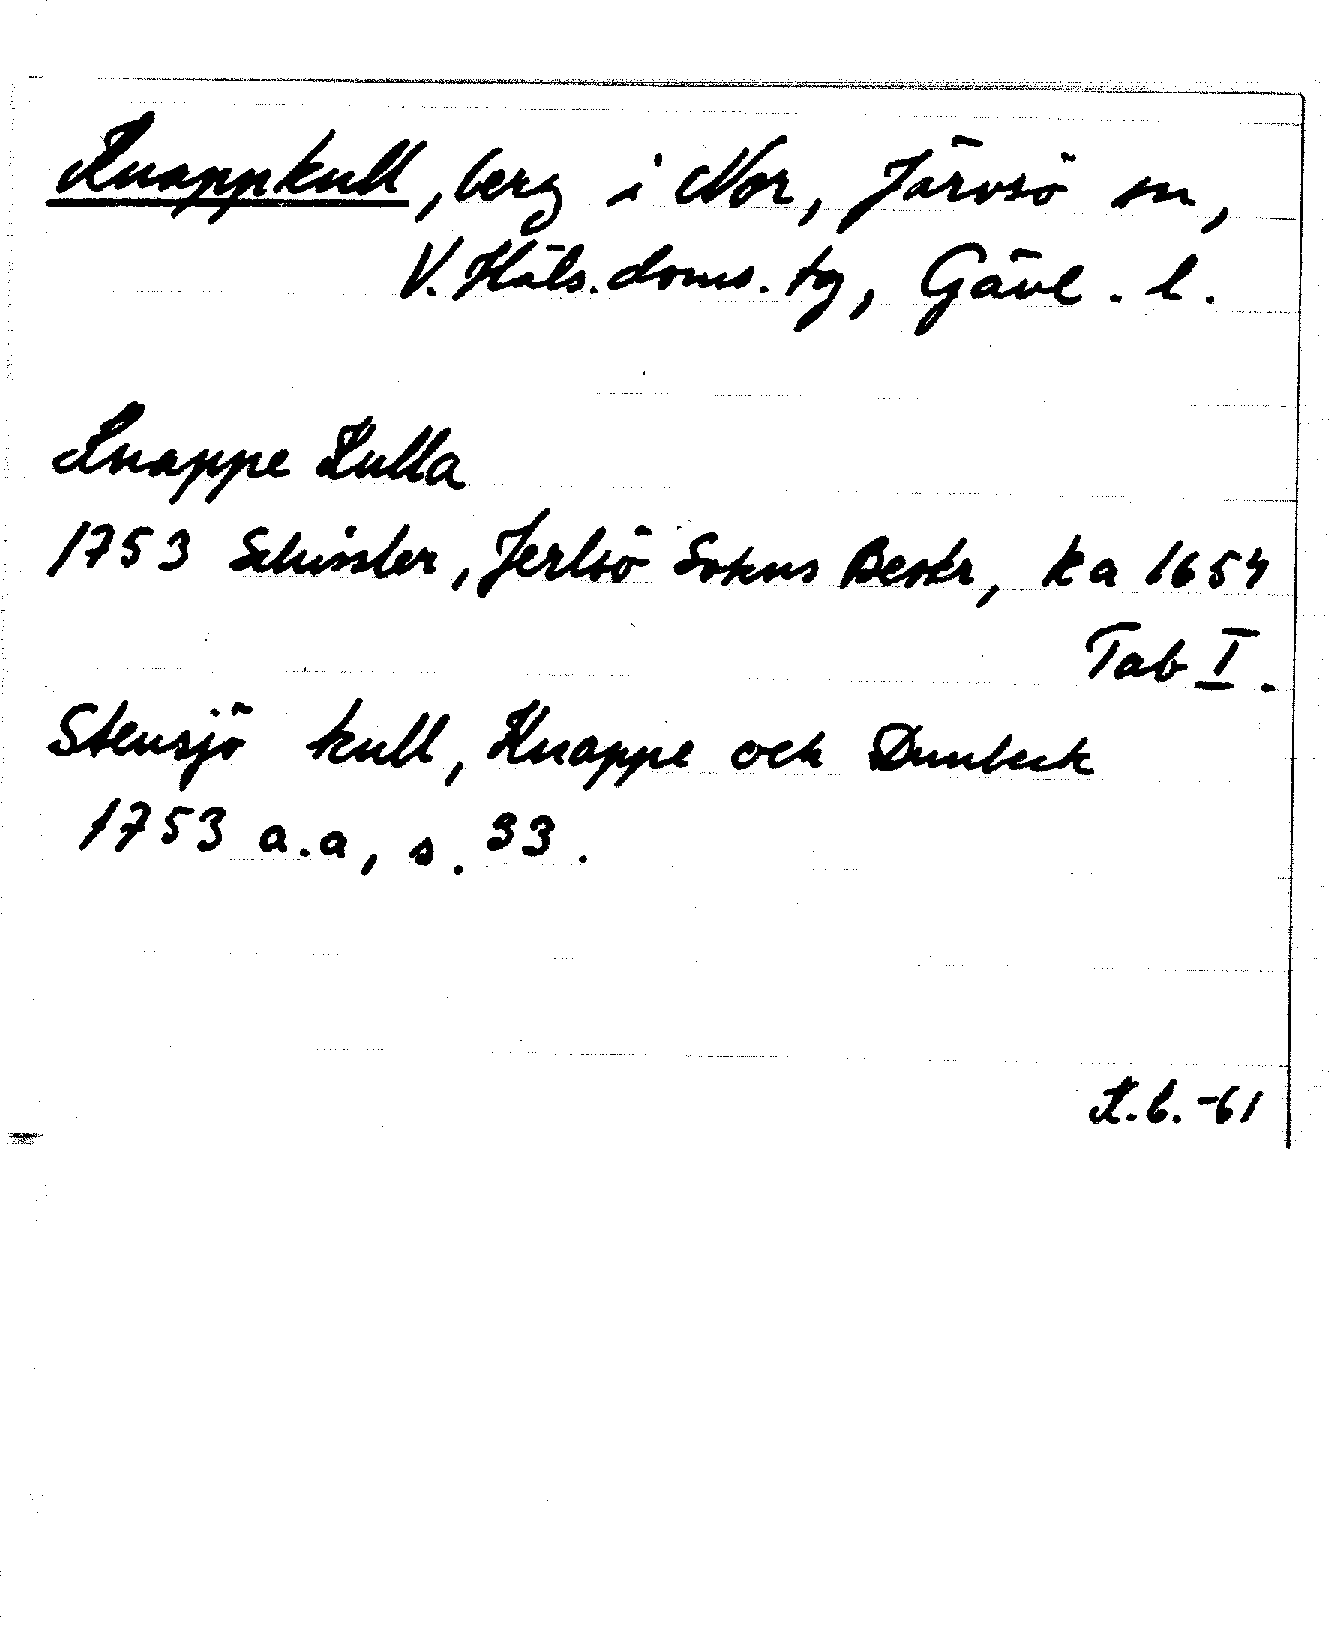 Knappkull, berg i Nor, Järvsö sn,
V. Häls. doms. tg, Gävl. l.
Knappe Kulla
1753 Schissler, Jerfsö Sokns Beskr, ka 1654
Tab I.
Stensjö kull, Knappe och Dunbeck
1753 a.a, s. 33.
K.b. -61